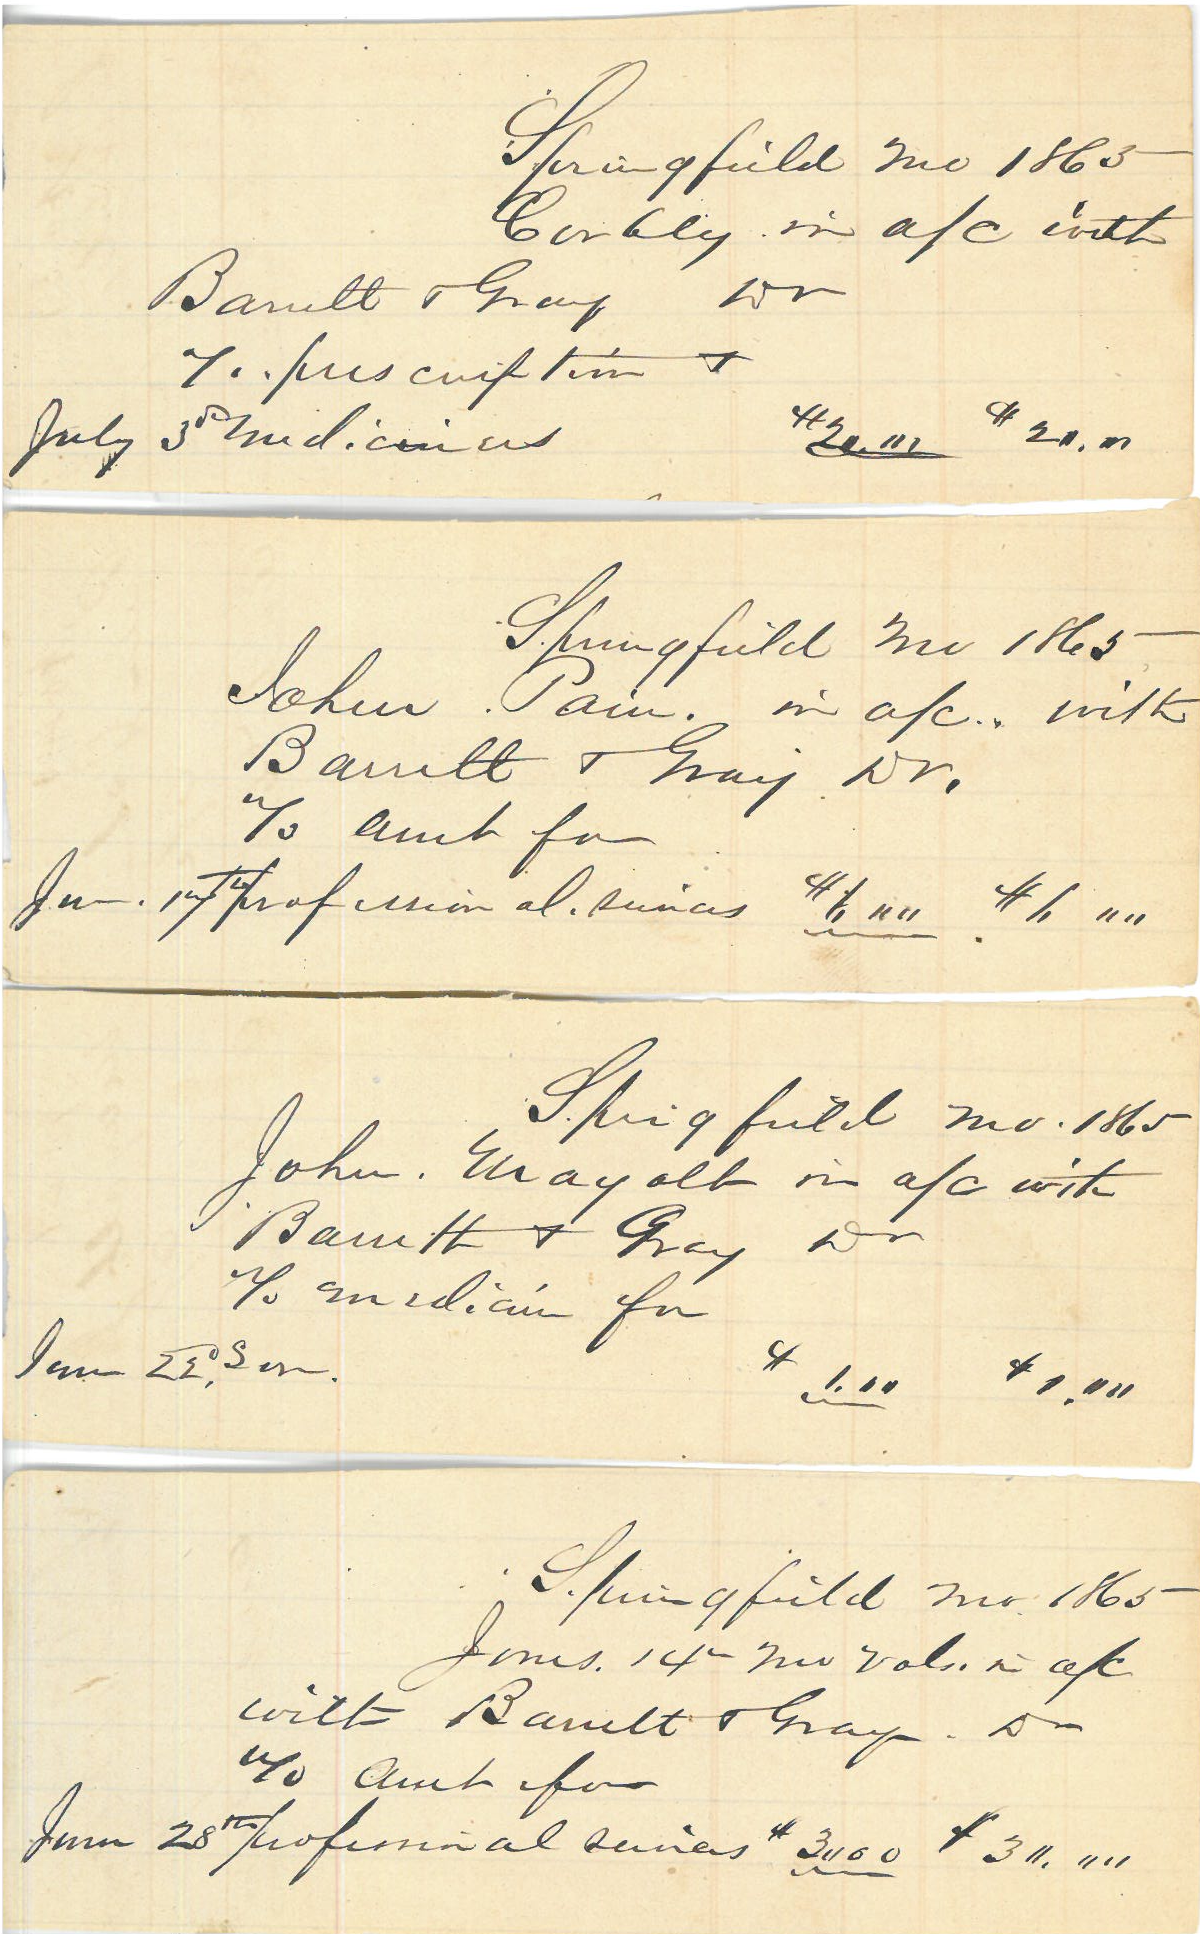 Springfield Mo 1865
Corbly in a/c with
Barrett & Gray Dr
To prescription &
July 3d Medicines $20.00 $20.00
Springfield Mo 1865
John Pain. in a/c.. with
Barrett & Gray Dr.
To Amt for
Jun. 17th professional services $6 00 $6 00
Sprigfield Mo. 1865
John. Mayolt in a/c with
Barrett & Gray Dr
To Medicin for
June 22d, Son. $ 1.00 $ 1.00
Springfield Mo. 1865
Jones. 14th Mo Vols. in a/c
with Barrett & Gray. Dr
To Amt for
June 28th professional services $ 30 00 $ 30. 00